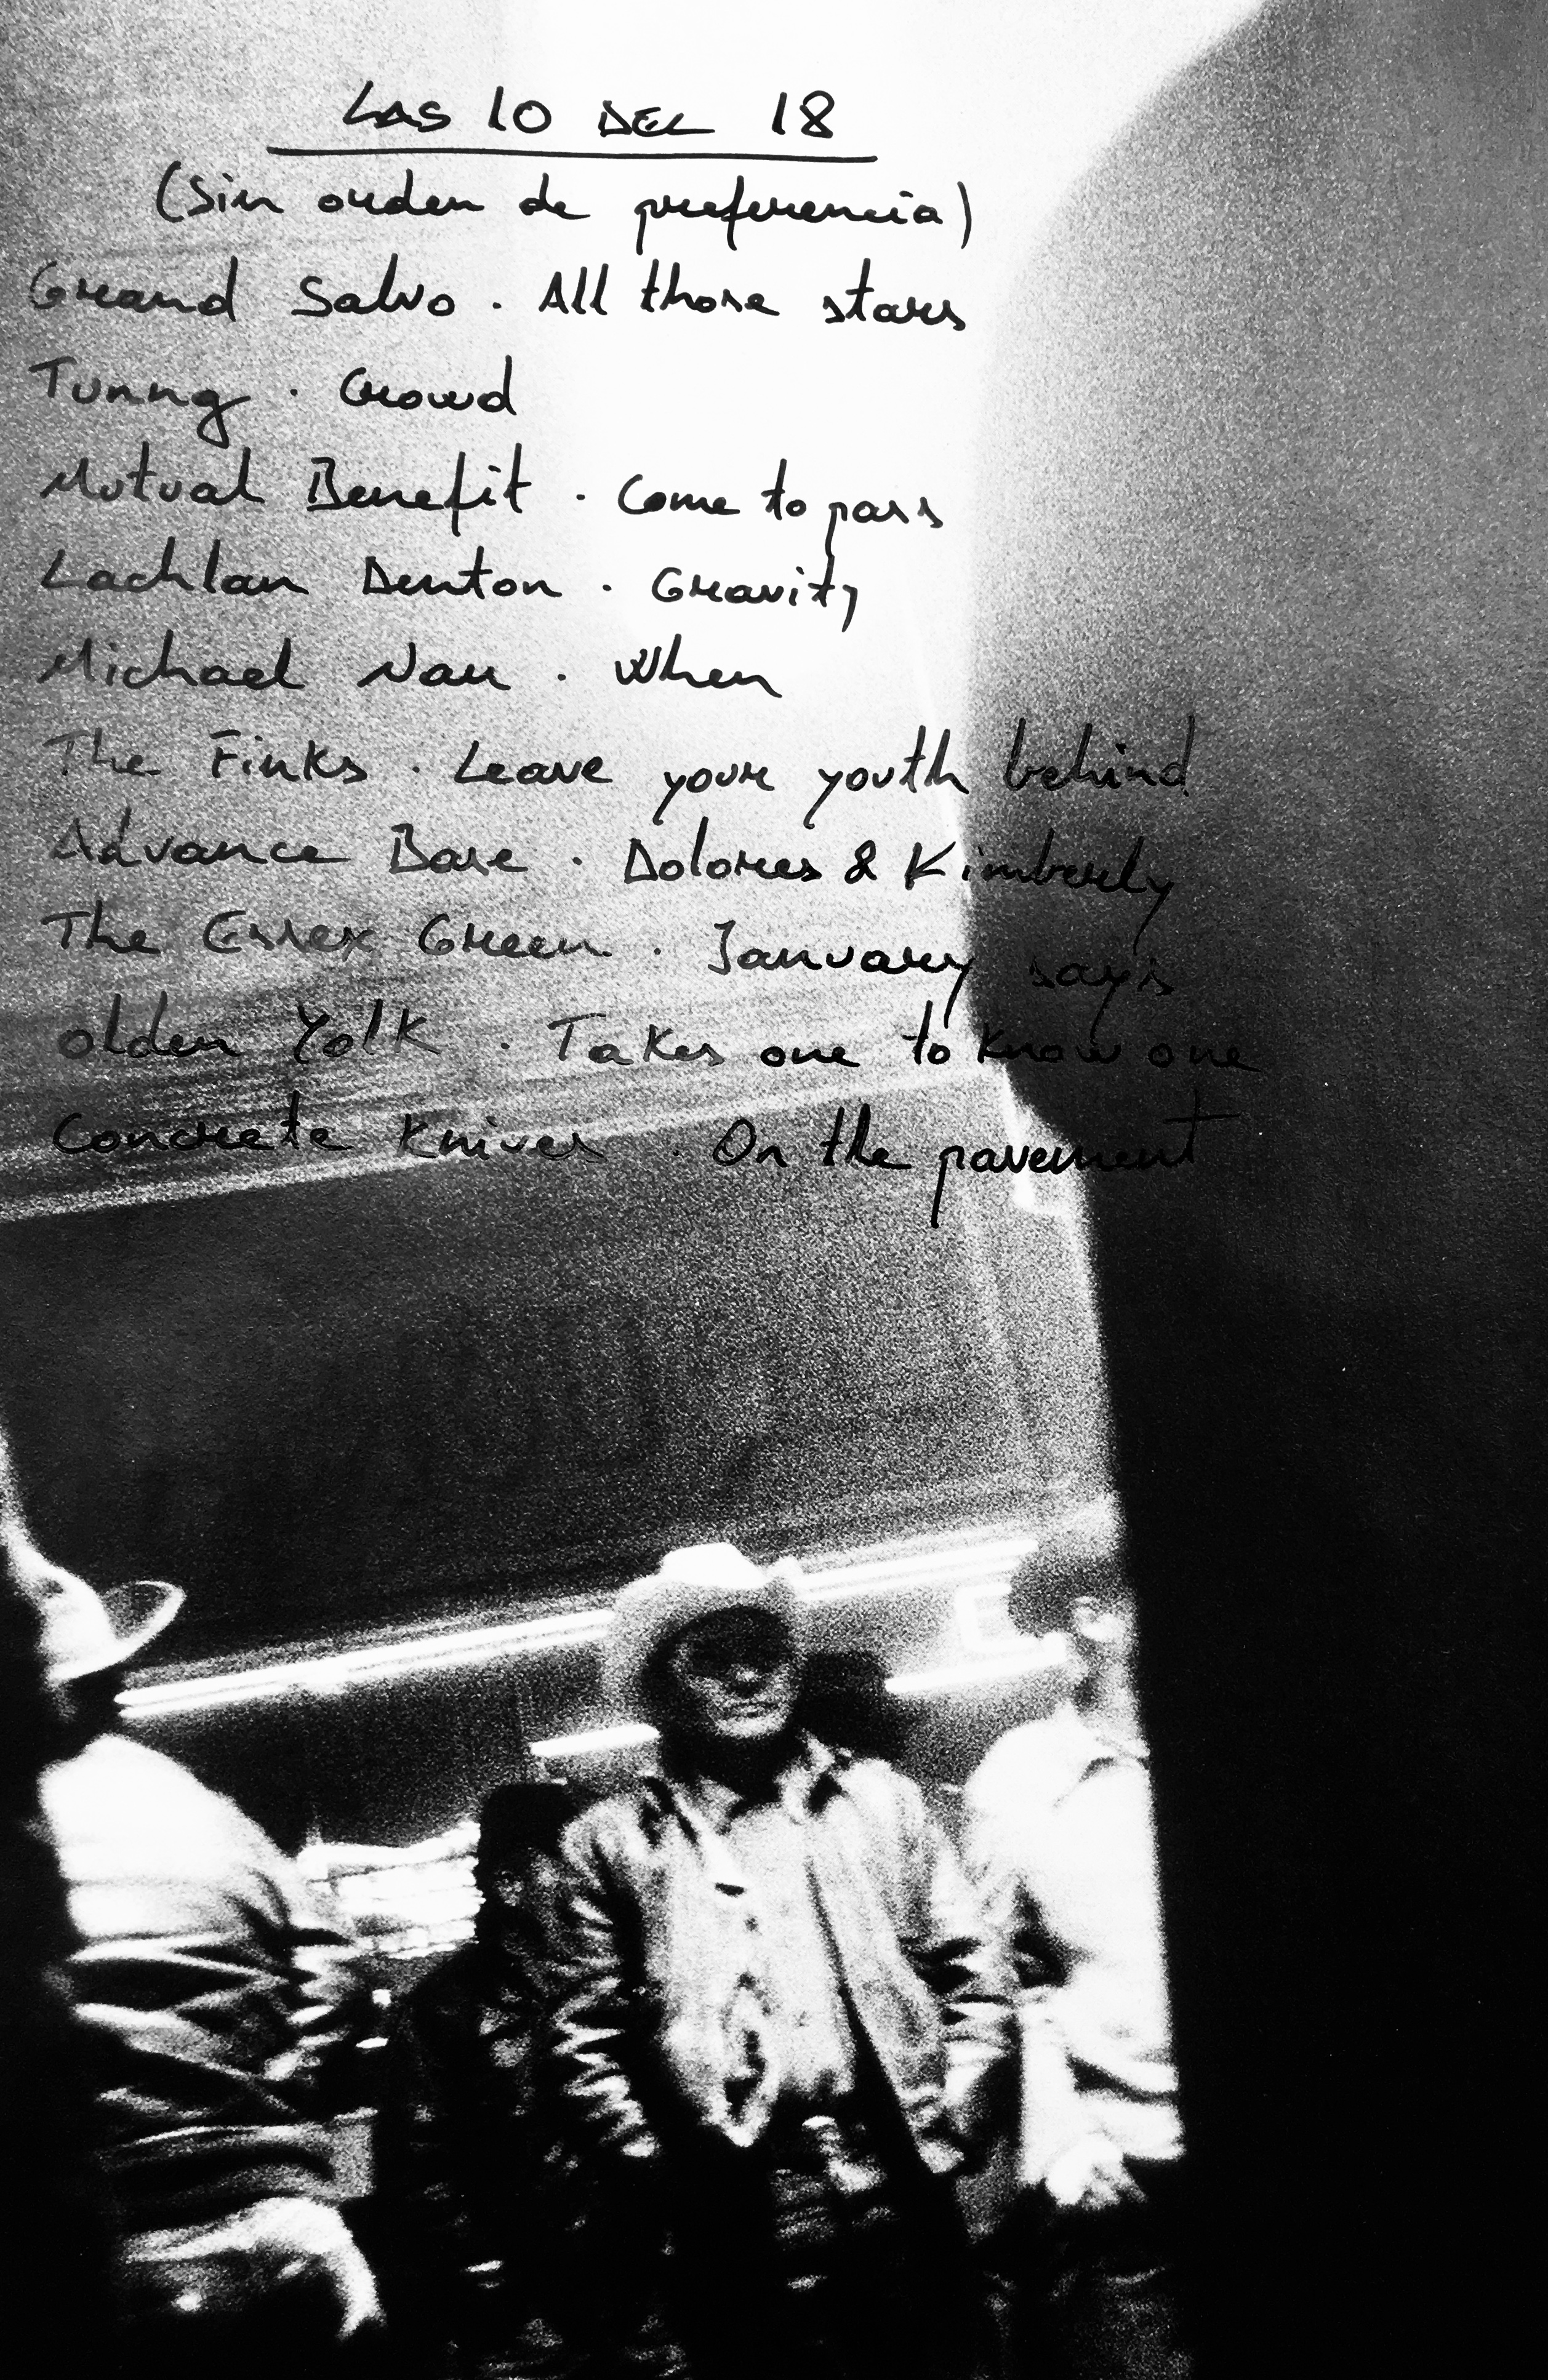 LAS 10 DEL 18
(Sin orden de preferencia)
Grand Salvo . All those stars
Tunng . Crowd
Mutual Benefit . Come to pass
Lachlan Denton . Gravity
Michael Nau . When
The Finks . Leave your youth behind
Advance Base . Dolores & Kimberly
The Essex Green . January says
Olden Yolk . Takes one to know one
Concrete Knives . On the pavement